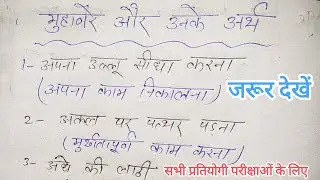 मुहावरें और उनके अर्थ
1- अपना उल्लू सीधा करना
(अपना काम निकालना)
जरूर देखें
2- अकल पर पत्थर पड़ना
(मुर्खतापूर्ण काम करना)
3- अंधे की लाठी
सभी प्रतियोगी परीक्षाओं के लिए